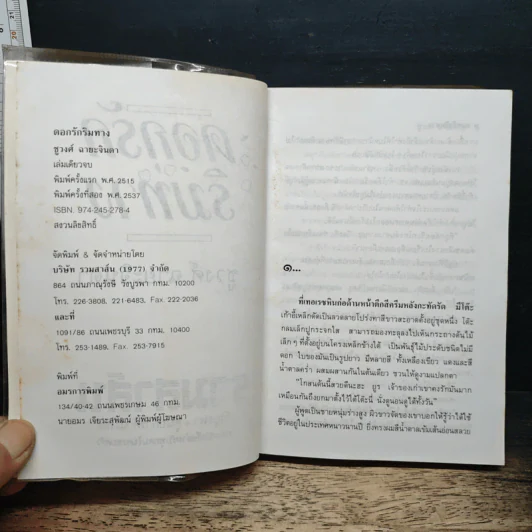 ดอกรักริมทาง
ชูวงศ์ ฉายะจินดา
เล่มเดียวจบ
พิมพ์ครั้งแรก พ.ศ. 2515
พิมพ์ครั้งที่สอง พ.ศ. 2537
ISBN. 974-245-278-4
สงวนลิขสิทธิ์
จัดพิมพ์ & จัดจำหน่ายโดย
บริษัท รวมสาส์น (1977) จำกัด
864 ถนนภาณุรังษี วังบูรพา กทม. 10200
โทร. 226-3808, 221-6483, Fax. 222-2036
และที่
1091/86 ถนนเพชรบุรี 33 กทม. 10400
โทร. 253-1489. Fax. 253-7915
พิมพ์ที่
อมรการพิมพ์
134/40-42 ถนนเพชรเกษม 46 กทม.
นายอมร เจียระสุพัฒน์ ผู้พิมพ์ผู้โฆษณา
๑...
ที่เทอเรซพิบก่อด้านหน้าตึกสีครีมหลังกะทัดรัด มีโต๊ะ
เก้าอี้เหล็กดัดเป็นลวดลายโปร่งทาสีขาวสะอาดตั้งอยู่ชุดหนึ่ง โต๊ะ
กลมเล็กปูกระจกใส สามารถมองทะลุลงไปเห็นกระถางต้นไม้
เล็กๆ ที่ตั้งอยู่บนโครงเหล็กข้างใต้ เป็นพันธุ์ไม้ประดับชนิดไม่มี
ดอก ใบของมันเป็นรูปยาว มีหลายสี ทั้งเหลืองเขียว แดงและสี
น้ำตาลคร่ำ ผสมผสานกันในต้นเดียว ชวนให้ดูงามแปลกตา
"โกสนต้นนี้สวยดีนะฮะ ยูร เจ้าของเก่าเขาคงรักมันมาก
เหมือนกันถึงยกมาตั้งไว้ใต้โต๊ะนี่ นั่งดูนอนดูได้ทั้งวัน"
ผู้พูดเป็นชายหนุ่มร่างสูง ผิวขาวจัดของเขาบอกให้รู้ว่าได้ใช้
ชีวิตอยู่ในประเทศหนาวนานปี ยิ่งทรงผมสีน้ำตาลเข้มเส้นอ่อนสลวย